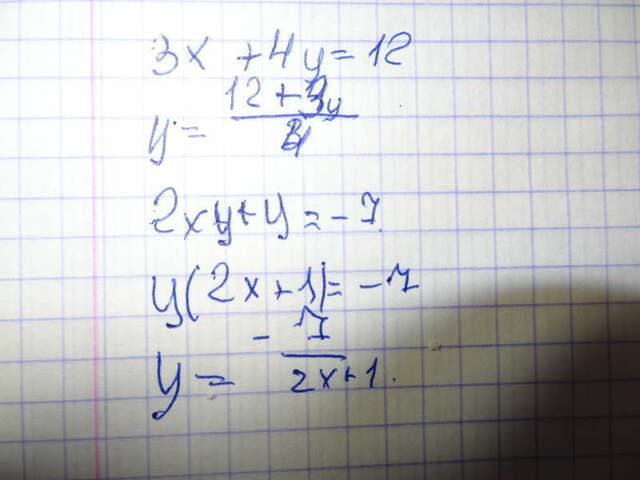 3x + 4y = 12
y = (12 + 3y)/4
2xy + y = -7
y(2x + 1) = -7
y = -7/(2x + 1).